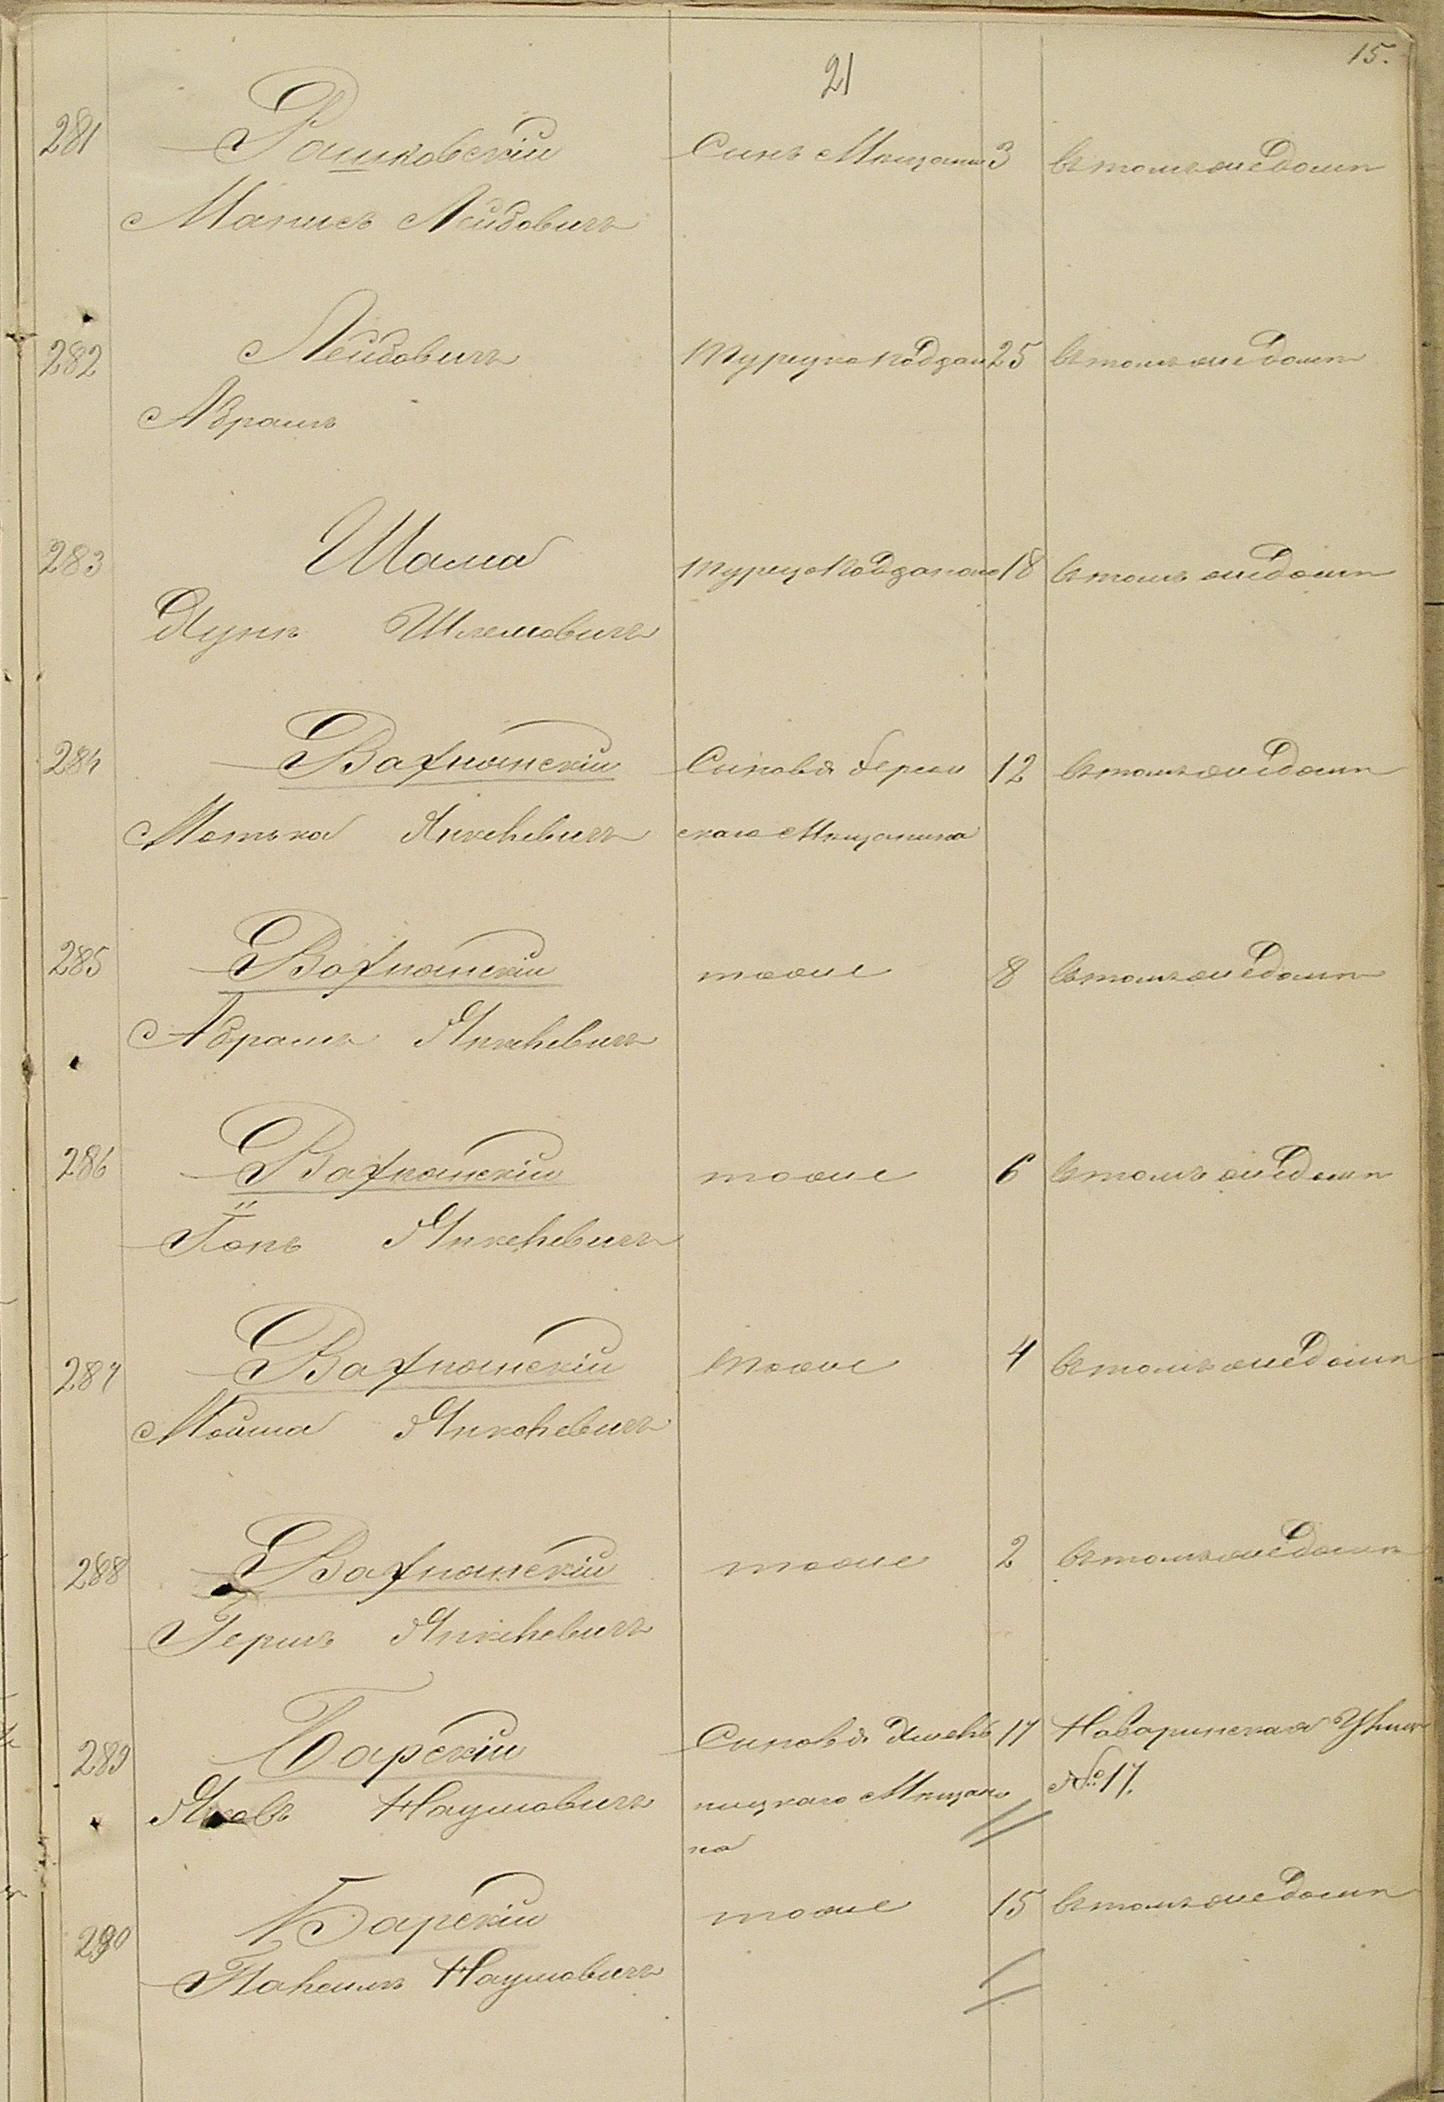 15.
21
281 Рашковскій Сынъ Мѣщани 3 въ томъ же домѣ
Манисъ Лейбовичъ
282 Лейбовичъ Турецко подзан 25 въ томъ же домѣ
Абрамъ
283 Шама 18 въ томъ же домѣ
Шлемовичъ
284 Вахнянскій Сыновья Берш 12 въ томъ же домѣ
Мотька Янкелевичъ скаго Мѣщанина
285 Вахнянскій тоже 8 въ томъ же домѣ
Абрамъ Янкелевичъ
286 Вахнянскій тоже 6 въ томъ же домѣ
Янкелевичъ
287 Вахнянскій тоже 4 въ томъ же домѣ
Мойша Янкелевичъ
288 Вахнянскій тоже 2 въ томъ же домѣ
Гершъ Янкелевичъ
289 Барскій Сыновья Хмель 17 Наваринская
Яковъ Наумовичъ ницкаго Мѣщани № 17.
на
290 Барскій тоже 15 въ томъ же домѣ
Наумовичъ